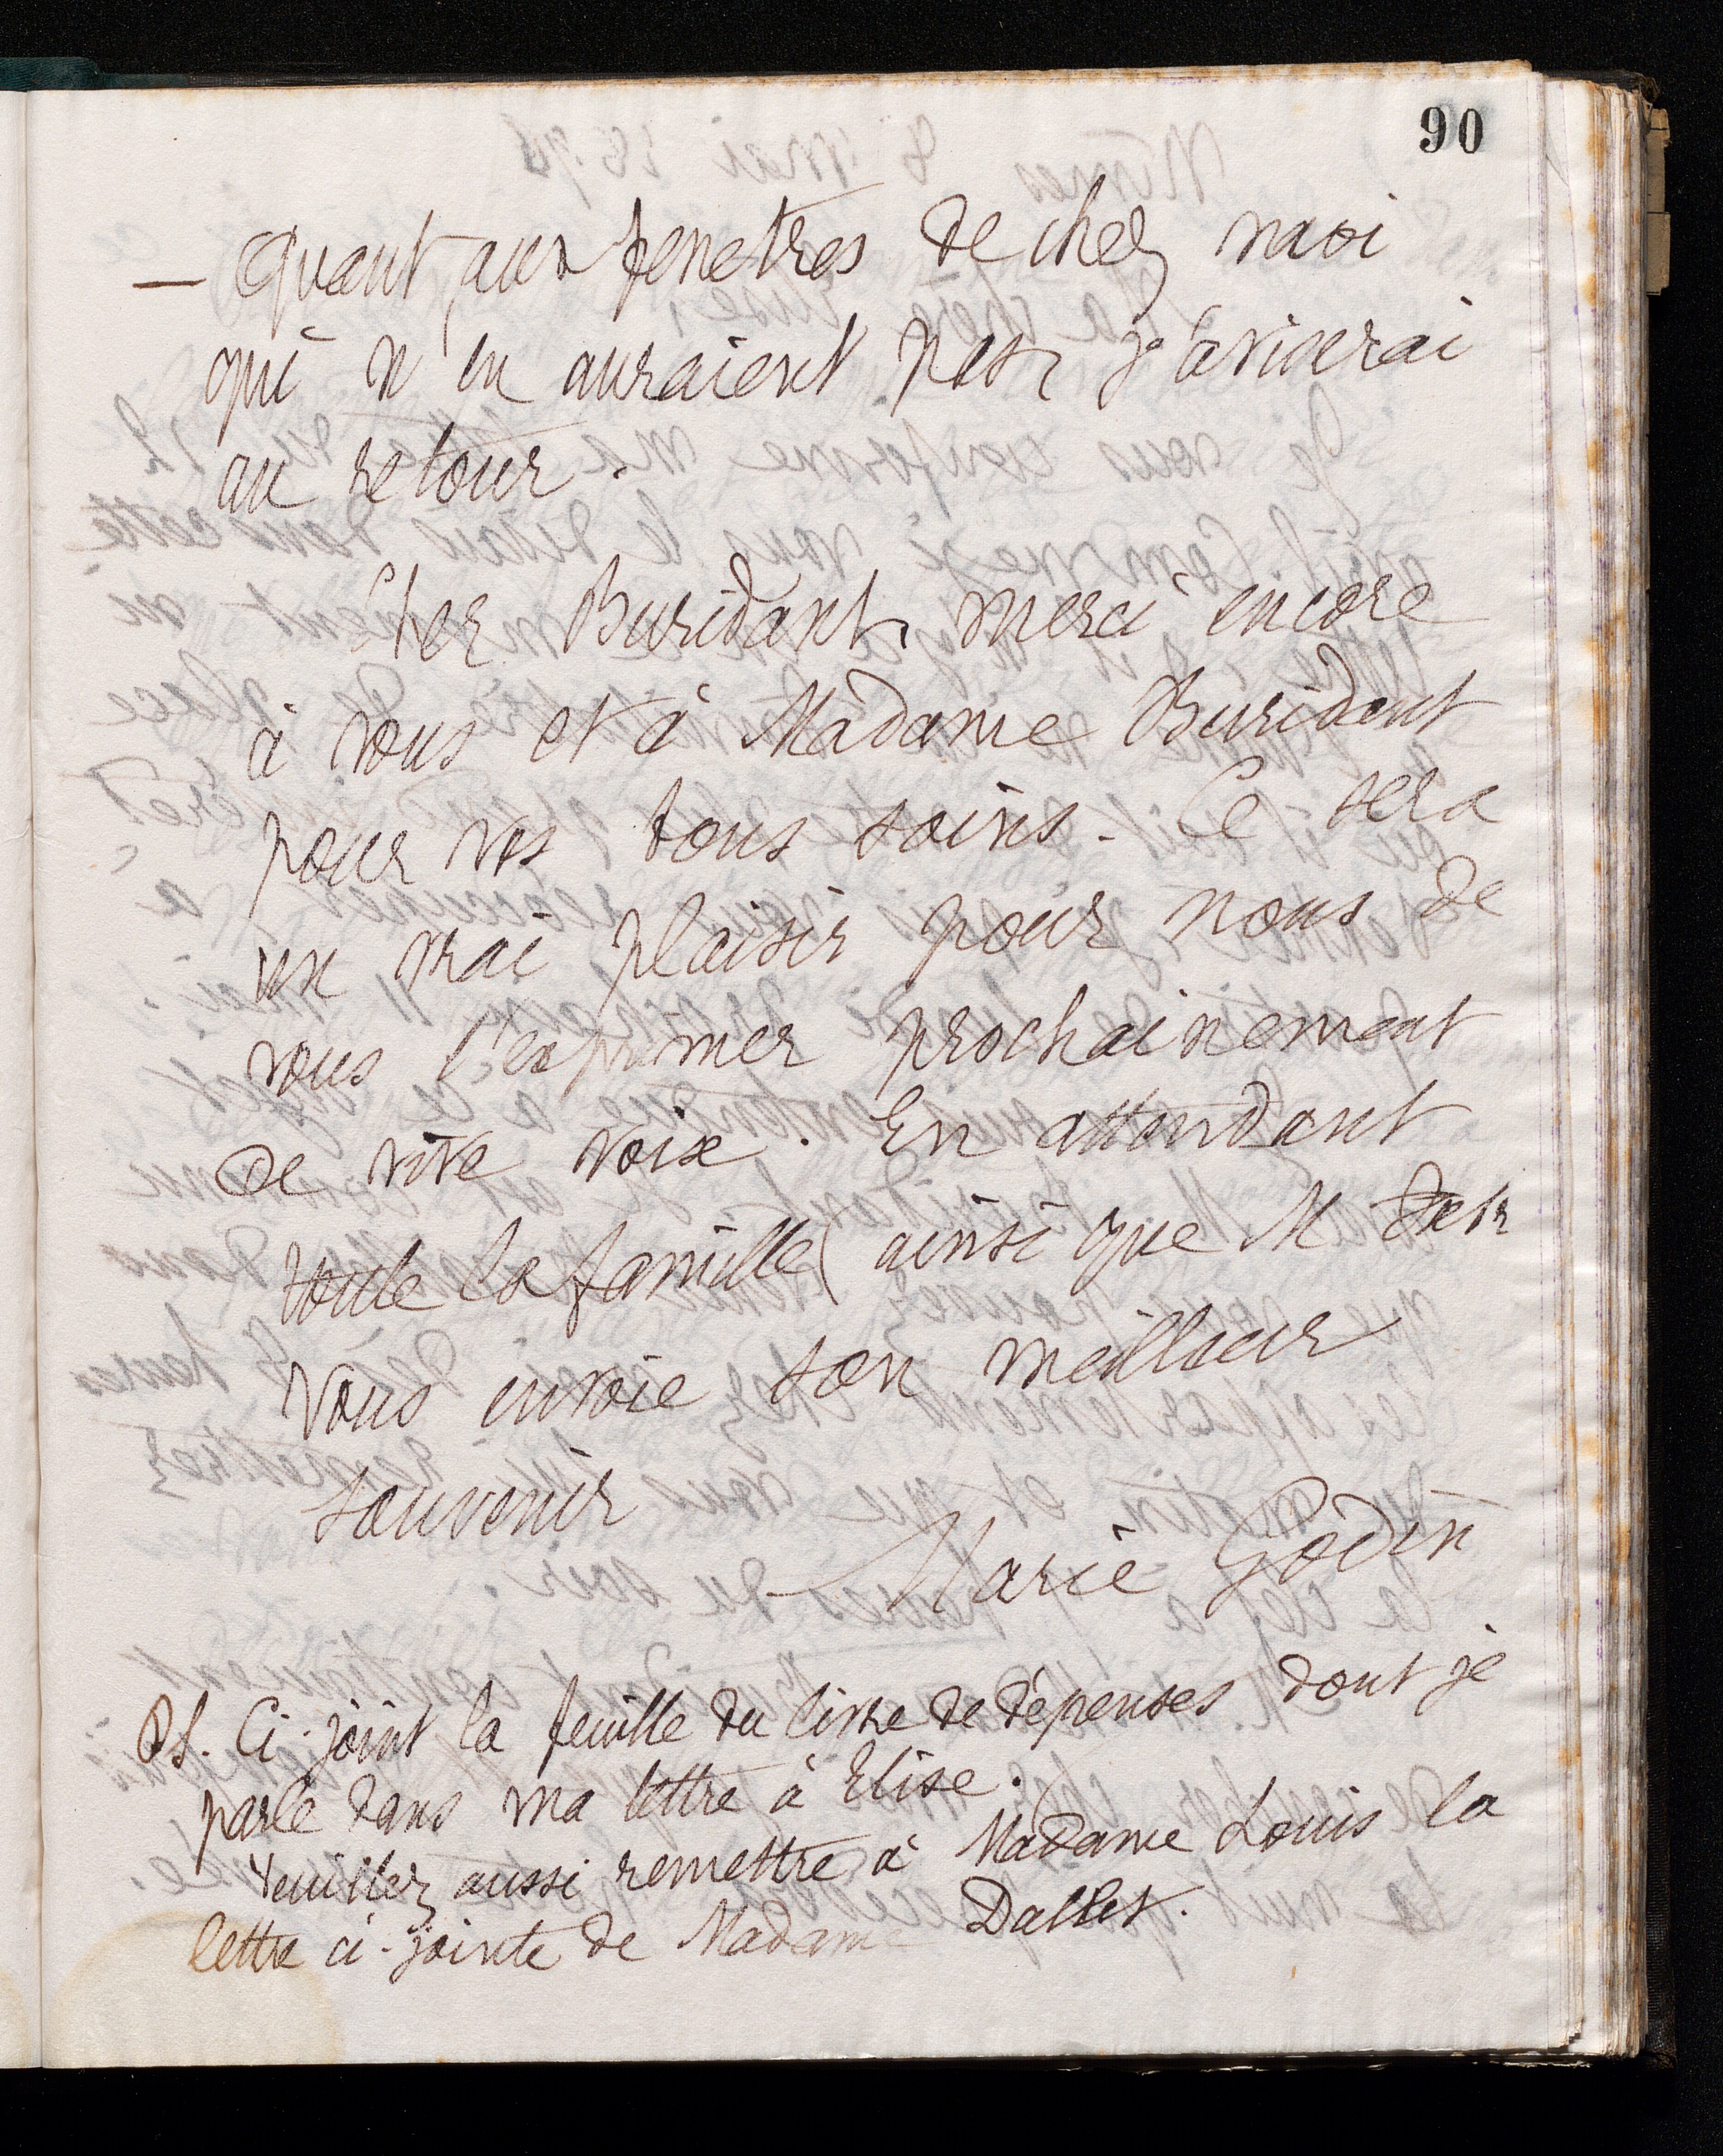 90
— Quant aux fenetres de chez moi
qui n'en auraient pas, j'aviserai
au retour.
Cher Buridant, merci encore
à vous et à Madame Buridant
pour vos bons soins. Ce sera
un vrai plaisir pour nous de
vous l'exprimer prochainement
de vive voix. En attendant
toute la famille ainsi que M
vous envoie son meilleur
souvenir
Marie Godin
Ps. Ci-joint la feuille du livre de dépenses dont je
parle dans ma lettre à Elise.
Veuillez aussi remettre à Madame Louis la
lettre ci-jointe de Madame Dallet.